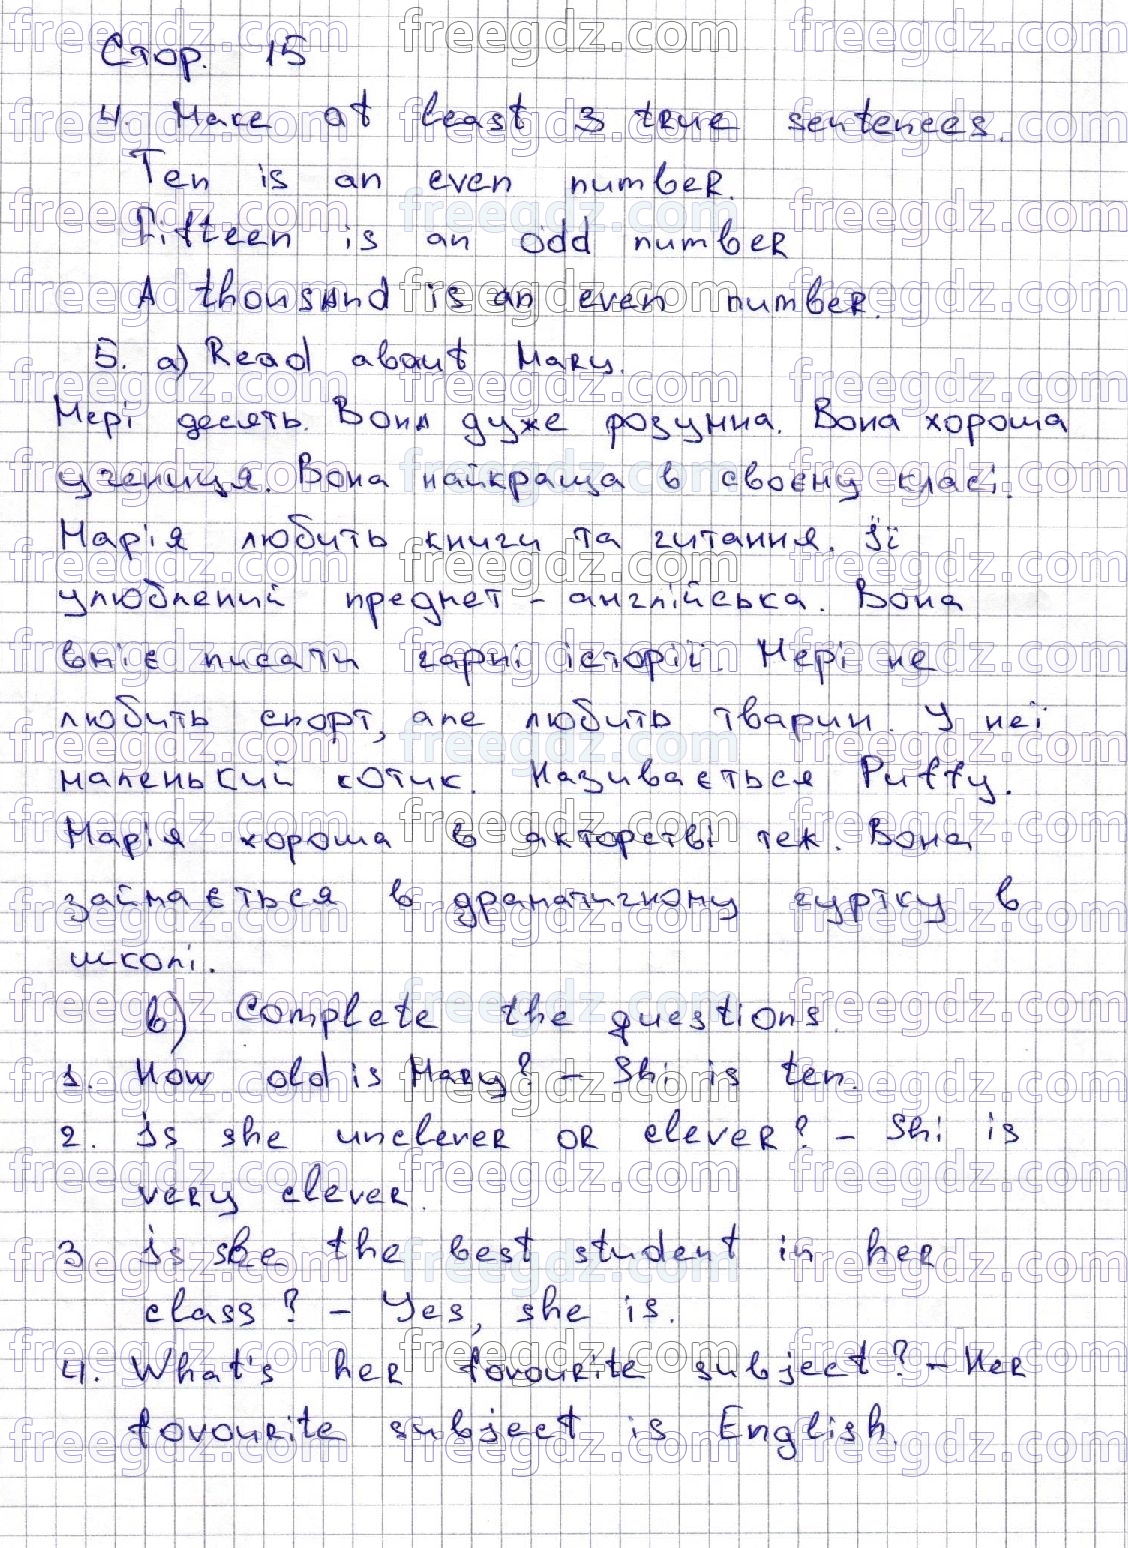 Стор. 15
4. Make at least 3 true sentences.
Ten is an even number.
Fifteen is an odd number
A thousand is an even number.
5. a) Read about Mary.
Мері десять. Вона дуже розумна. Вона хороша
учениця. Вона найкраща в своєму класі.
Марія любить книги та читання. Її
улюблений предмет - англійська. Вона
вміє писати гарні історії. Мері не
любить спорт, але любить тварин. У неї
маленький котик. Називається Puffy.
Марія хороша в акторстві теж. Вона
займається в драматичному гуртку в
школі.
b) Complete the questions.
1. How old is Mary? - Shi is ten.
2. Is she unclever or clever? - Shi is
very clever.
3 Is she the best student in her
class? - Yes, she is.
4. What's her favourite subject? - Her
favourite subject is English.
freegdz.com